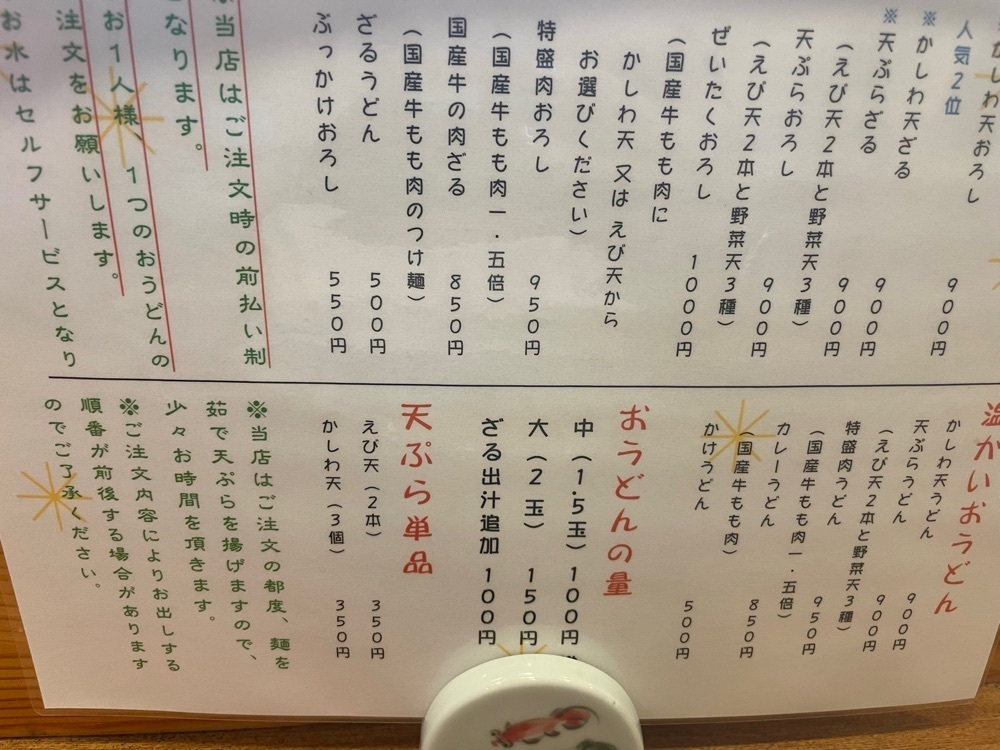 かしわ天おろし
人気2位 900円
※かしわ天ざる
※天ぷらざる 900円
(えび天2本と野菜天3種) 900円
天ぷらおろし
(えび天2本と野菜天3種) 900円
ぜいたくおろし
(国産牛もも肉に 1000円
かしわ天 又は えび天から
お選びください)
特盛肉おろし 950円
(国産牛もも肉一・五倍)
国産牛の肉ざる 850円
(国産牛もも肉のつけ麺)
ざるうどん 500円
ぶっかけおろし 550円
当店はご注文時の前払い制
となります。
お1人様 1つのおうどんの
注文をお願いします。
お水はセルフサービスとなり
温かいおうどん
かしわ天うどん 900円
天ぷらうどん 900円
(えび天2本と野菜天3種)
特盛肉うどん 950円
(国産牛もも肉一・五倍)
カレーうどん 850円
(国産牛もも肉)
かけうどん 500円
おうどんの量
中(1.5玉)100円
大(2玉)150円
ざる出汁追加 100円
天ぷら単品
えび天(2本) 350円
かしわ天(3個) 350円
※当店はご注文の都度、麺を
茹で天ぷらを揚げますので、
少々お時間を頂きます。
※ご注文内容によりお出しする
順番が前後する場合があります
のでご了承ください。